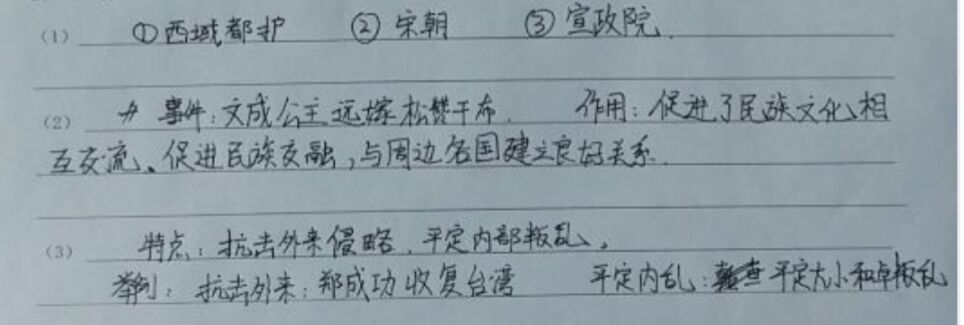 (1) ①西域都护 ②宋朝 ③宣政院.
(2) 事件:文成公主远嫁松赞干布. 作用:促进了民族文化相
互交流、促进民族交融,与周边各国建立良好关系.
(3) 特点:抗击外来侵略.平定内部叛乱。
举例:抗击外来:郑成功收复台湾 平定内乱:平定大小和卓叛乱